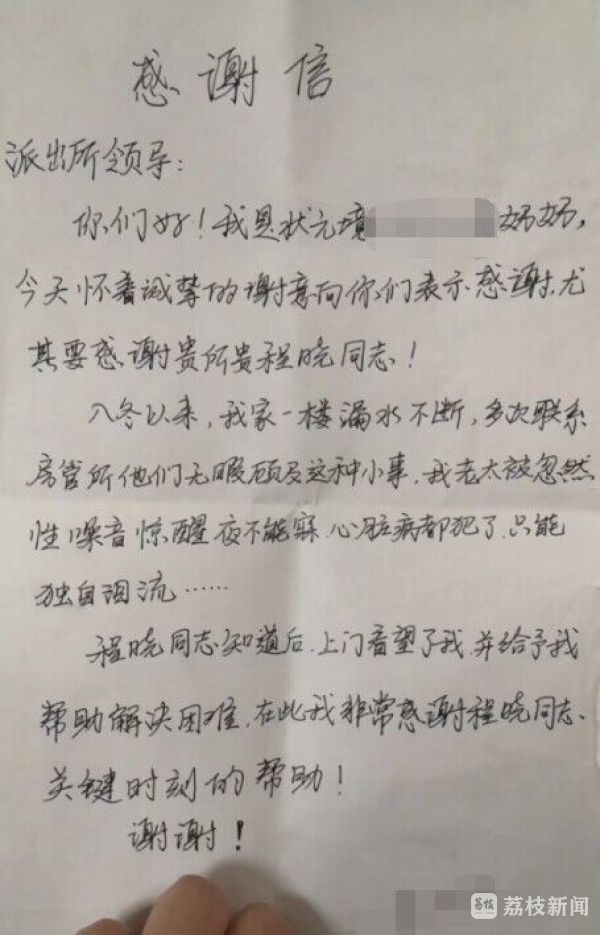 感谢信
派出所领导：
你们好！我是状元境 奶奶，
今天怀着诚挚的谢意向你们表示感谢，尤
其要感谢贵所贵程晓同志！
入冬以来，我家一楼漏水不断，多次联系
房管所他们无暇顾及这种小事，我老太被忽然
性噪音惊醒夜不能寐，心脏病都犯了，只能
独自泪流……
程晓同志知道后，上门看望了我，并给予我
帮助解决困难，在此我非常感谢程晓同志、
关键时刻的帮助！
谢谢！
荔枝 荔枝新闻